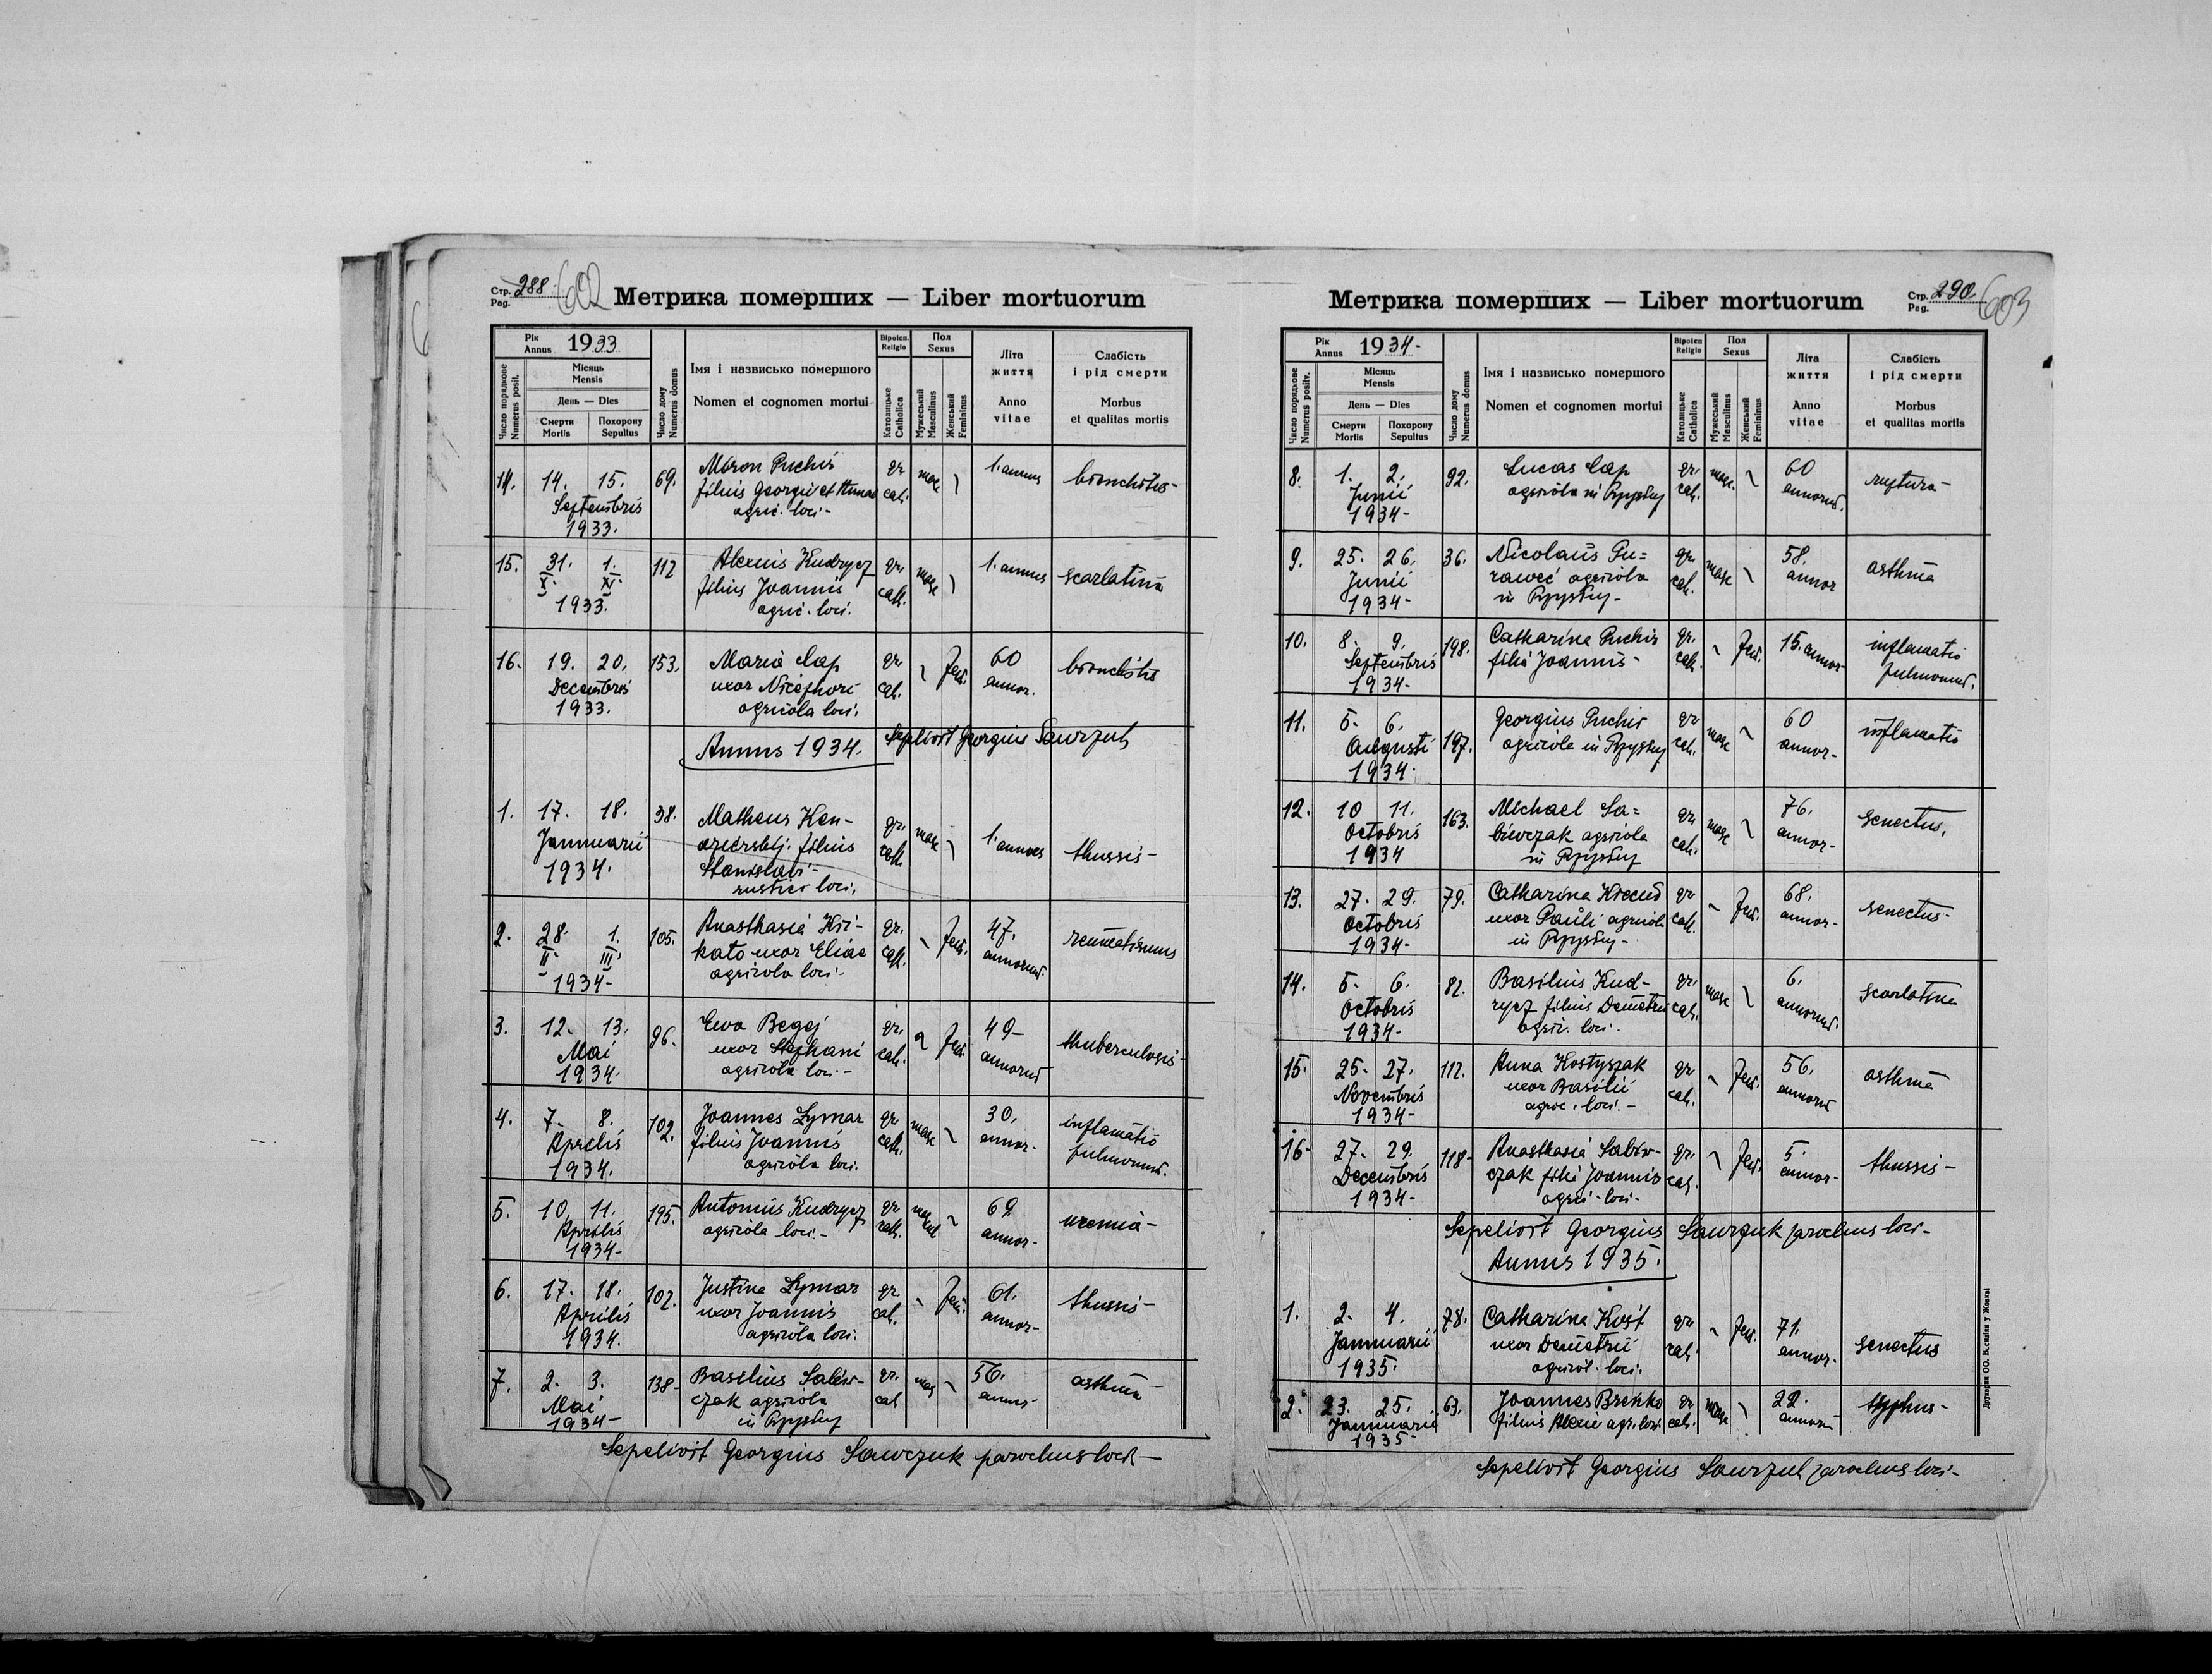 Стр. Pag. 288 602
Метрика померших — Liber mortuorum
Рік Annus 1933
Число порядкове Numerus posit.
Місяць Mensis
День — Dies
Смерти Mortis
Похорону Sepultus
Число дому Numerus domus
Імя і назвисько помершого
Nomen et cognomen mortui
Віроісп. Religio
Католицьке Catholica
Пол Sexus
Мужеський Masculinus
Женський Femininus
Літа життя
Anno vitae
Слабість і рід смерти
Morbus et qualitas mortis
14. 14. 15. Septembris 1933. 69. Miron Puchir filius Georgii et Annae agric. loci - gr. cat. masc 1. annus bronchitis -
15. 31. X. 1. XI. 1933. 112 Alexius Kudrycz filius Joannis agric. loci. gr. cath. masc 1. annus scarlatina
16. 19. 20. Decembris 1933. 153. Maria Cap uxor Nicephori agricola loci. gr. cat. fem. 60 annor. bronchitis
Annus 1934. Sepelivit Georgius Sawczuk
1. 17. 18. Jannuarii 1934. 38. Matheus Ken-
dzierskyj filius
Stanislavi -
rustici loci. gr. cath. masc 1. annus thussis -
2. 28. II. 1. III. 1934 - 105. Anasthasia Kiri-
kato uxor Eliae
agricola loci - gr. cath. fem. 47. annorum. reumatismus
3. 12. 13. Mai 1934. 96. Ewa Begej
uxor Stephani
agricola loci - gr. cat. fem. 49 - annorum thuberculosis -
4. 7. 8. Aprilis 1934. 102. Joannes Lymar
filius Joannis
agricola loci. gr. cath. masc 30. annor. inflamatio pulmonum.
5. 10. 11. Aprilis 1934 - 195. Antonius Kudrycz
agricola loci. - gr. cath. 69 annor - uremia -
6. 17. 18. Aprilis 1934. 102. Justina Lymar
uxor Joannis
agricola loci. gr. cat. fem. 61. annor - thussis -
7. 2. 3. Mai 1934 - 138 - Basilius Sabiw-
czak agricola
in gr. cat masc 56. annor - asthma
Sepelivit Georgius Sawczuk parochus loci -
Метрика померших — Liber mortuorum
Стр. Pag. 290 603
Рік Annus 1934 -
Число порядкове Numerus positv.
Місяць Mensis
День — Dies
Смерти Mortis
Похорону Sepultus
Число дому Numerus domus
Імя і назвисько помершого
Nomen et cognomen mortui
Віроісп. Religio
Католицьке Catholica
Пол Sexus
Мужеський Masculinus
Женський Femininus
Літа життя
Anno vitae
Слабість і рід смерти
Morbus et qualitas mortis
8. 1. 2. Junii 1934 - 92. Lucas Cap
agricola in gr. cat. masc. 60 annorum. ruptura -
9. 25. 26. Junii 1934 - 36. Nicolaus Pu=
raweć agricola
in gr. cat. masc 58. annor asthma
10. 8. 9. Septembris 1934 - 198. Catharina Puchir
filia Joannis - gr. cath. fem. 15. annor inflamatio pulmonum.
11. 5. 6. Augusti 1934. 197. Georgius Puchir
agricola in gr. cat. masc 60 annor - inflamatio
12. 10 11. Octobris 1934 163. Michael Sa=
biwczak agricola
in gr. cat. masc 76. annor - senectus.
13. 27. 29. Octobris 1934 - 79. Catharina
uxor Pauli agricola
in gr. cath. fem. 68. annor - senectus -
14. 5. 6. Octobris 1934 - 82. Basilius Kud-
rycz filius Demetrii
agric. loci. gr. cat. masc 6. annorum. scarlatina
15. 25. 27. Novembris 1934 - 112. Anna Kostyszak
uxor Basilii
agric. loci. - gr. cat. fem. 56. annorum asthma
16 - 27. 29. Decembris 1934 - 118 - Anasthasia Sabiw-
czak filia Joannis
agric. loci - gr. cat. fem. 5. annor - thussis -
Sepelivit Georgius Sawczuk parochus loci -
Annus 1935.
1. 2. 4. Jannuarii 1935. 78. Catharina Kost
uxor Demetrii
agricol. loci. gr. cat. fem. 71. annor. senectus
2. 23. 25. Jannuarii 1935 - 63. Joannes Breńko
filius Alexii agr. loci. gr. cat. masc 22. annorum typhus -
Sepelivit Georgius Sawczuk parochus loci -
Друкарня ОО. Василіян у Жовкві